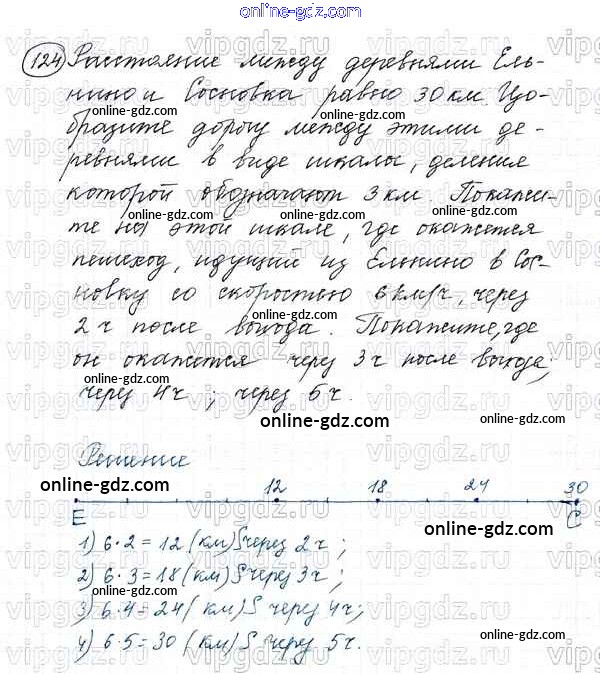 online-gdz.com
124 Расстояние между деревнями Ель-
нино и Сосновка равно 30 км. Изо-
бразите дорогу между этими де-
ревнями в виде шкалы, деления
которой обозначают 3 км. Покажи-
те на этой шкале, где окажется
пешеход, идущий из Ельнино в Сос-
новку со скоростью 6 км/ч, через
2 ч после выхода. Покажите, где
он окажется через 3 ч после выхода;
через 4 ч ; через 5 ч.
Решение
12 18 24 30
E C
1) 6·2 = 12 (км) S через 2 ч ;
2) 6·3 = 18 (км) S через 3 ч ;
3) 6·4 = 24 (км) S через 4 ч;
4) 6·5 = 30 (км) S через 5 ч.